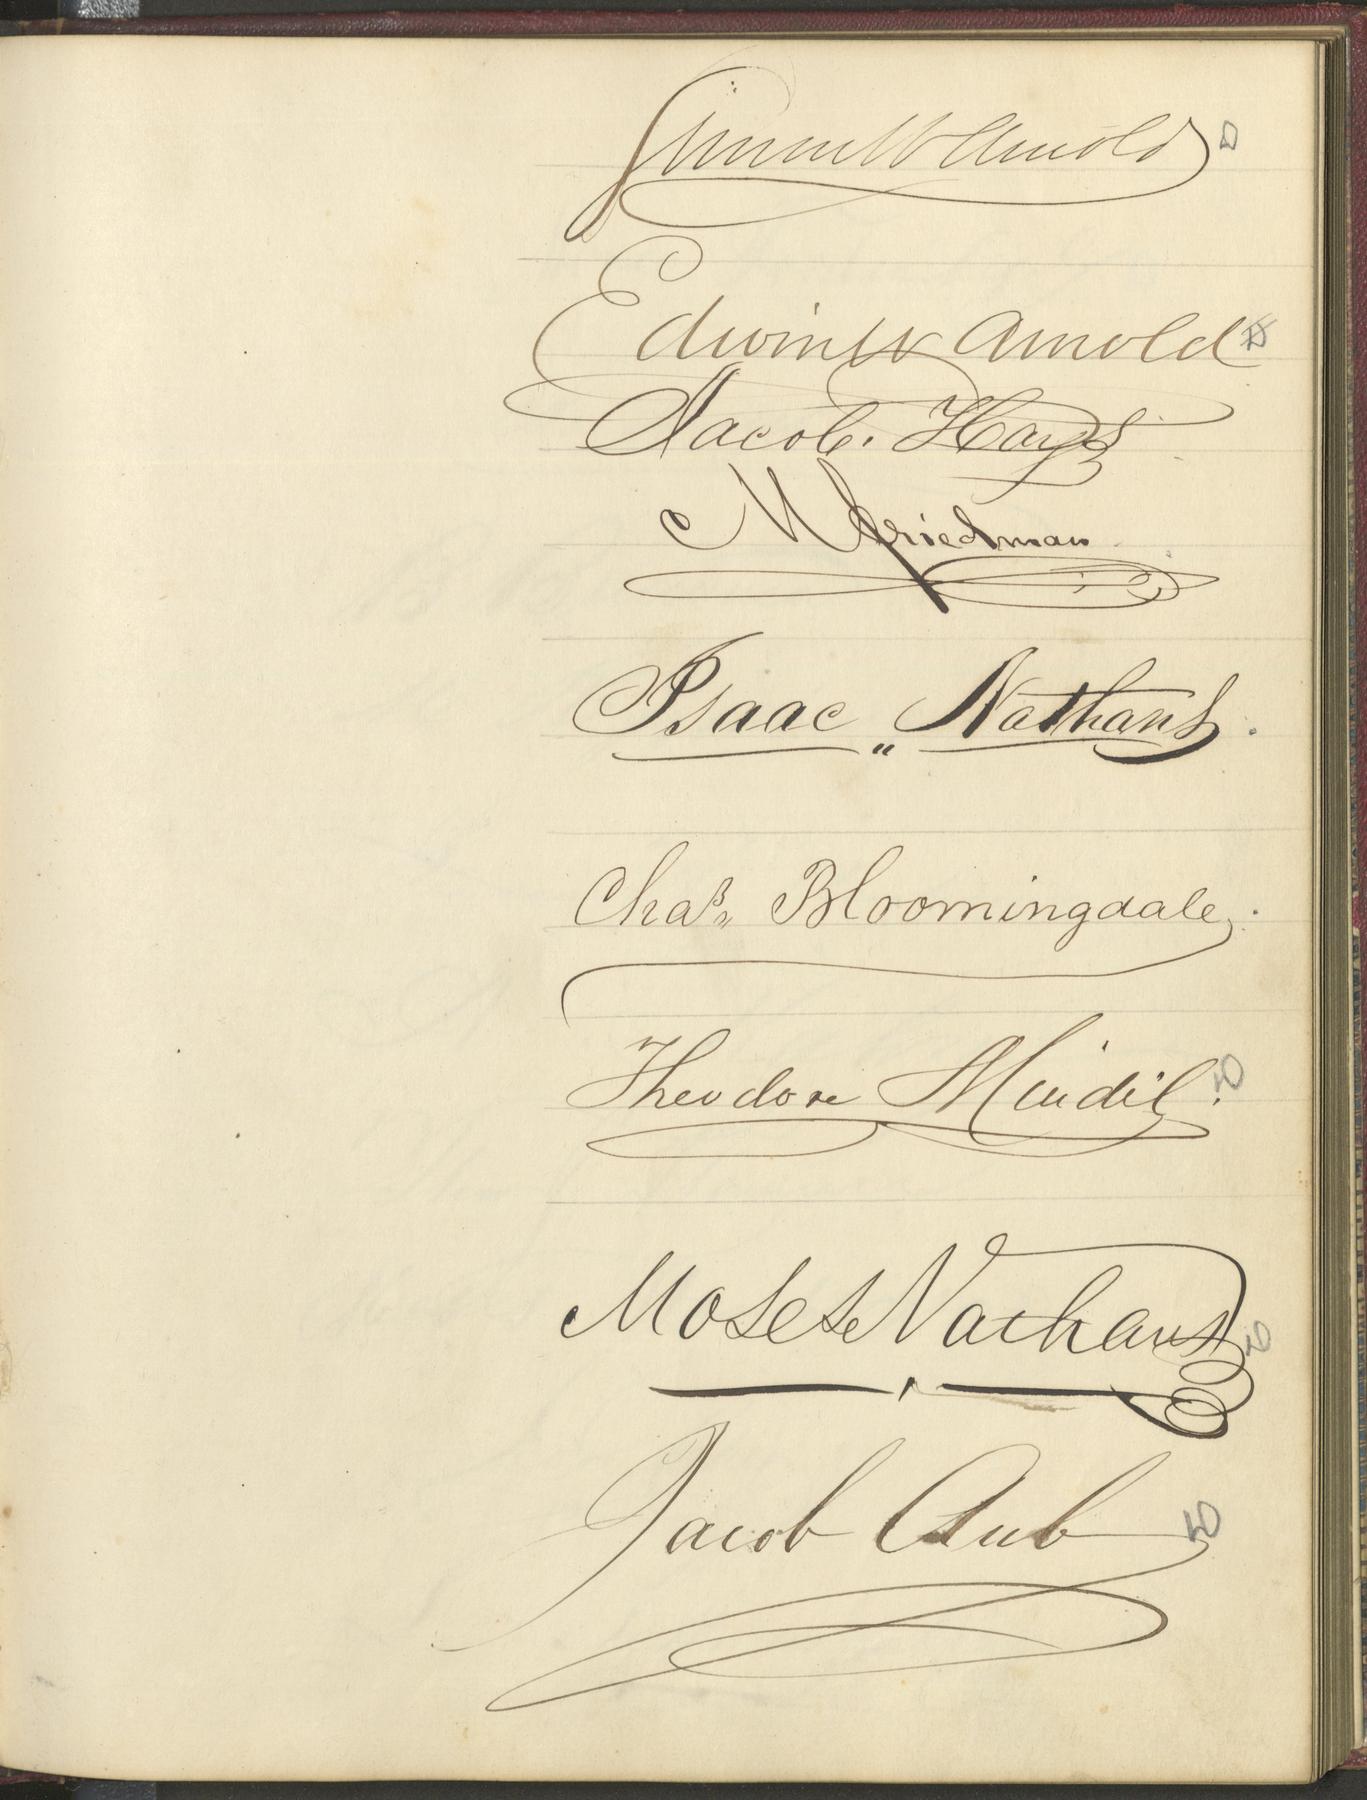 Simon W Arnold D
Edwin W Arnold D
Jacob. Hays
M Friedman
Isaac „ Nathans.
Chas„ Bloomingdale.
Theodore Mindil. D
Moses Nathans D
Jacob Aub D